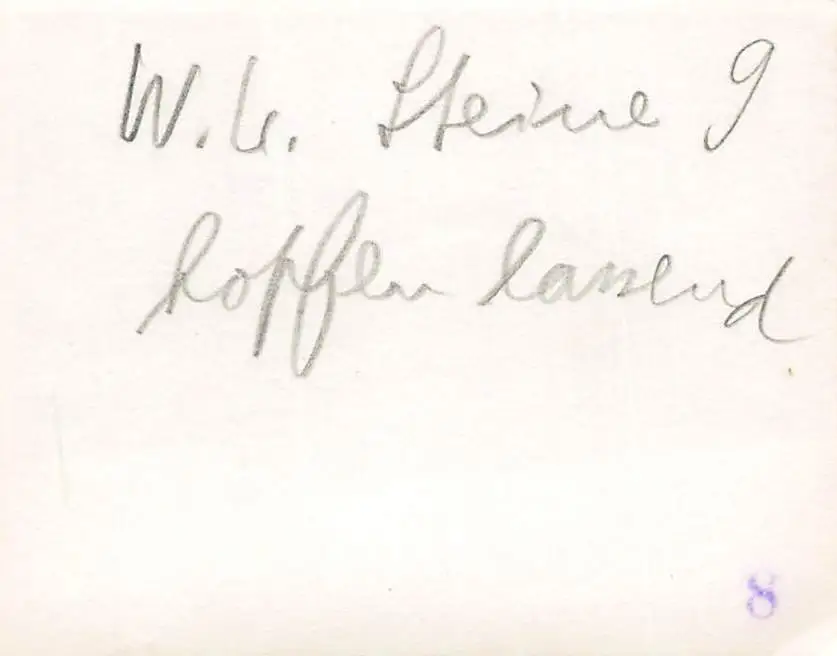 W. u. Steine 9
hopfen lassend
8